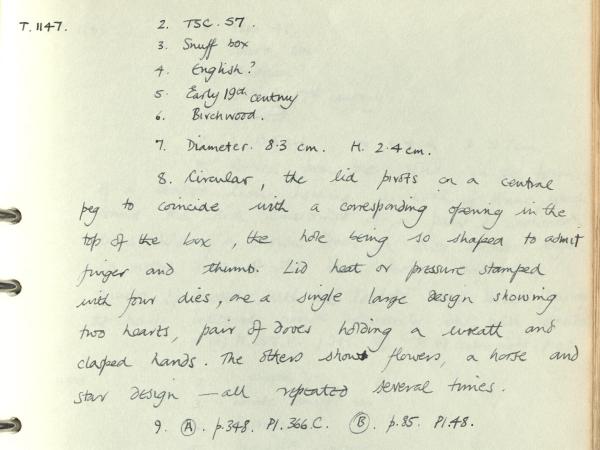 T.1147. 2. TSC. 57.
3. Snuff box
4. English?
5. Early 19th century
6. Birchwood.
7. Diameter. 8.3 cm. H. 2.4 cm.
8. Circular, the lid pivots on a central
peg to coincide with a corresponding opening in the
top of the box, the hole being so shaped to admit
finger and thumb. Lid heat or pressure stamped
with four dies, one a single large design showing
two hearts, pair of doves holding a wreath and
clasped hands. The others show flowers, a horse and
star design — all repeated several times.
9. A. p.348. Pl. 366.C. B. p.85. Pl.48.